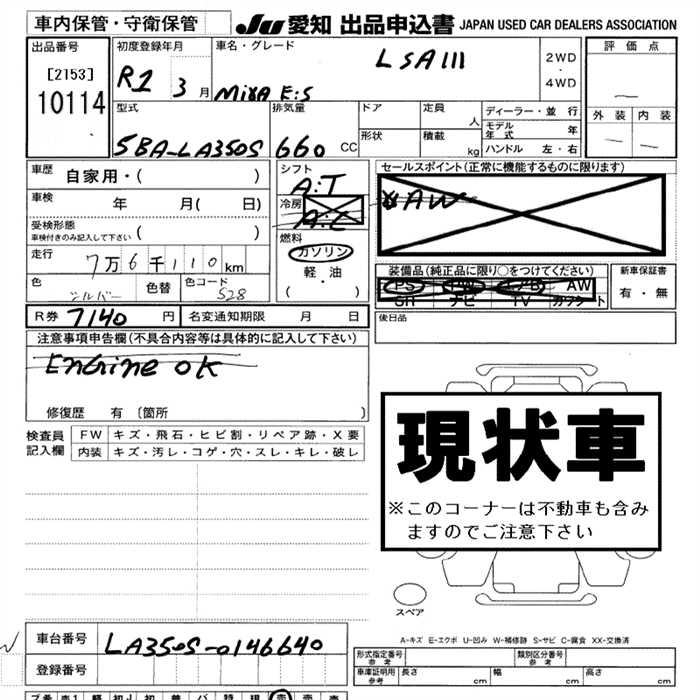 車内保管・守衛保管
JU 愛知 出品申込書 JAPAN USED CAR DEALERS ASSOCIATION
出品番号
[2153]
10114
初度登録年月
R1 3月
車名・グレード
LSAIII
MIRA E:S
2WD
・
4WD
評価点
外装 内装
型式
5BA-LA350S
排気量
660 CC
ドア
形状
定員
人
積載
kg
ディーラー・並 行
モデル年式 年
ハンドル 左・右
車歴 自家用・( )
車検 年 月( 日)
受検形態
車検付きのみ記入して下さい ( )
走行
7万6千110km
色 シルバー 色替 色コード S28
シフト
A:T
冷房
A:C
燃料
ガソリン
軽・油
( )
セールスポイント(正常に機能するものに限ります)
AW
装備品(純正品に限り〇をつけてください)
PS PW エアB AW
SR ナビ TV カワシート
新車保証書
有・無
R券 7140円 名変通知期限 月 日
後日品
注意事項申告欄(不具合内容等は具体的に記入して下さい)
Engine OK
修復歴 有〔箇所 〕
検査員記入欄
FW キズ・飛石・ヒビ割・リペア跡・X要
内装 キズ・汚レ・コゲ・穴・スレ・キレ・破レ
現状車
※このコーナーは不動車も含み
ますのでご注意下さい
スペア
A-キズ E-エクボ U-凹み W-補修跡 S-サビ C-腐食 XX-交換済
車台番号 LA350S-0146640
登録番号
形式指定番号
参考
類別区分番号
参考
車庫証明用
参考
長さ cm 幅 cm 高さ cm